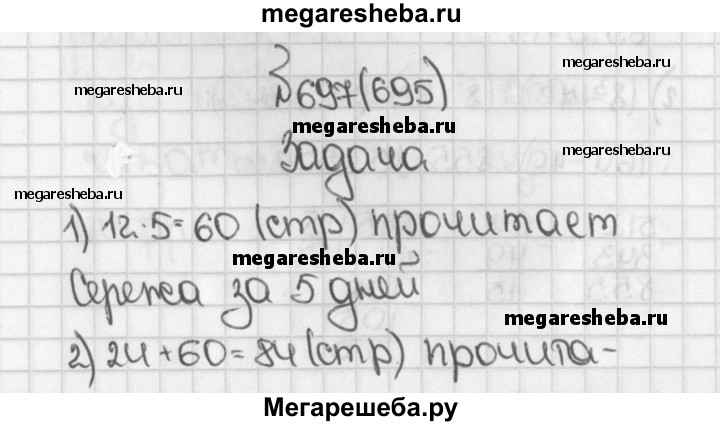 megaresheba.ru
megaresheba.ru
megaresheba.ru
№697(695)
megaresheba.ru
Задача
megaresheba.ru
1) 12·5=60 (стр) прочитает
megaresheba.ru
Сережа за 5 дней
megaresheba.ru
2) 24+60=84 (стр) прочита-
Мегарешеба.ру